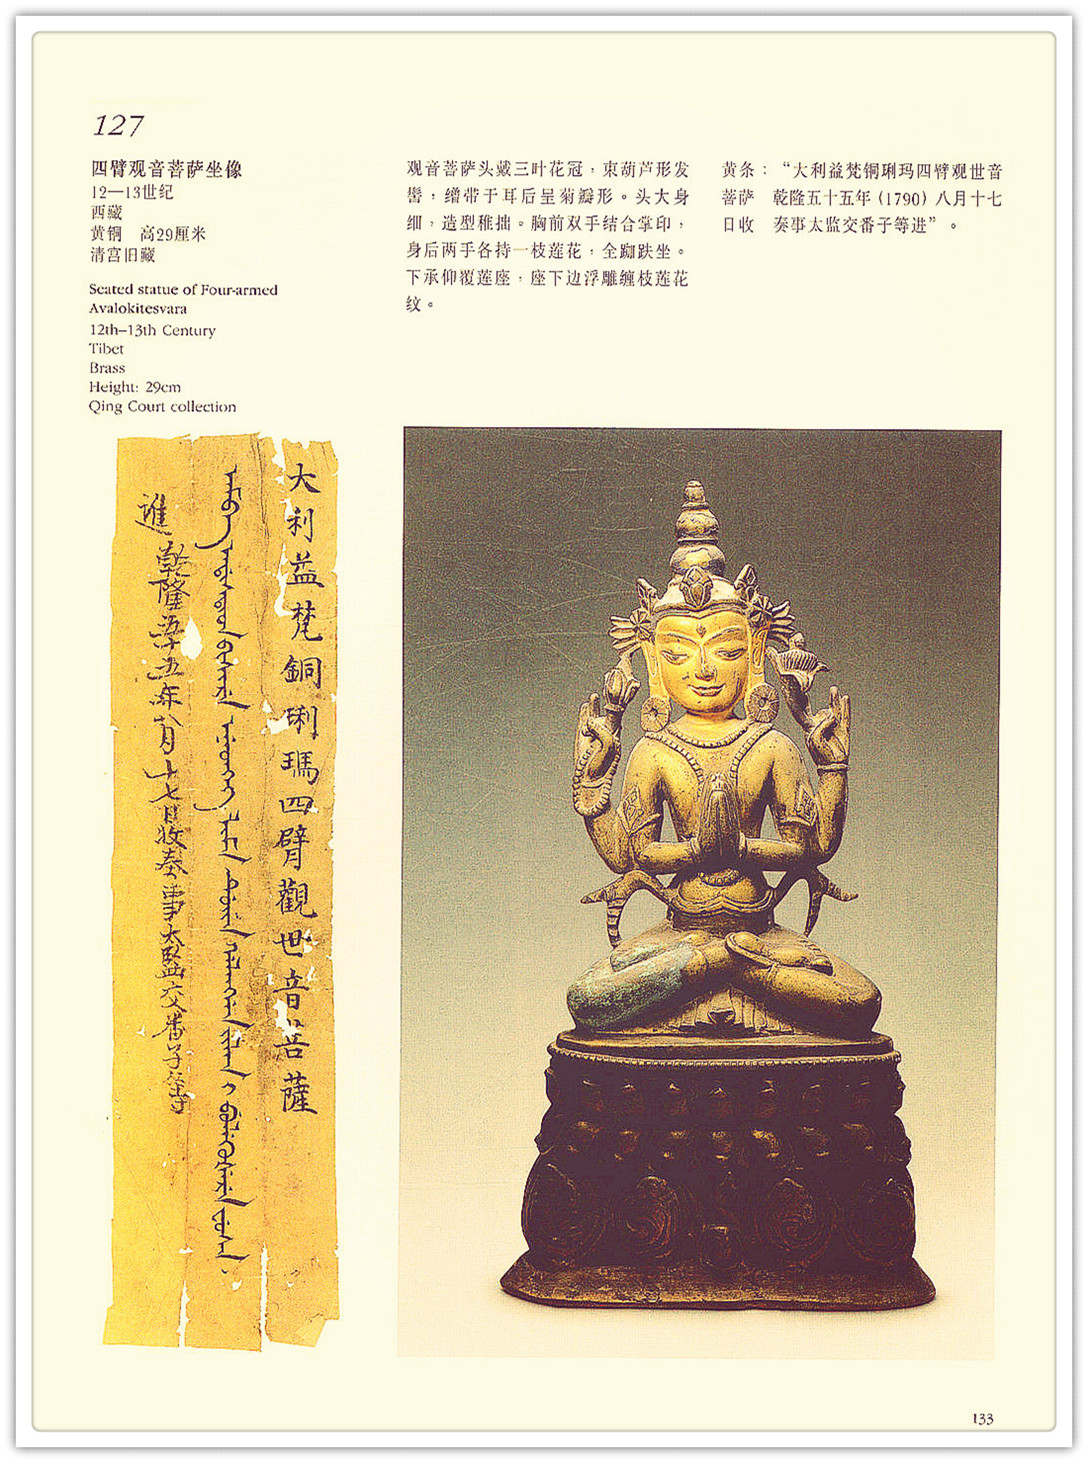 127
四臂观音菩萨坐像
12—13世纪
西藏
黄铜　高29厘米
清宫旧藏
Seated statue of Four-armed
Avalokitesvara
12th–13th Century
Tibet
Brass
Height: 29cm
Qing Court collection
观音菩萨头戴三叶花冠，束葫芦形发
髻，缯带于耳后呈菊瓣形。头大身
细，造型稚拙。胸前双手结合掌印，
身后两手各持一枝莲花，全跏趺坐。
下承仰覆莲座，座下边浮雕缠枝莲花
纹。
黄条：“大利益梵铜琍玛四臂观世音
菩萨　乾隆五十五年（1790）八月十七
日收　奏事太监交番子等进”。
大利益梵銅琍瑪四臂觀世音菩薩
進
乾隆五十五年八月十七日收奏事太監交番子等
133